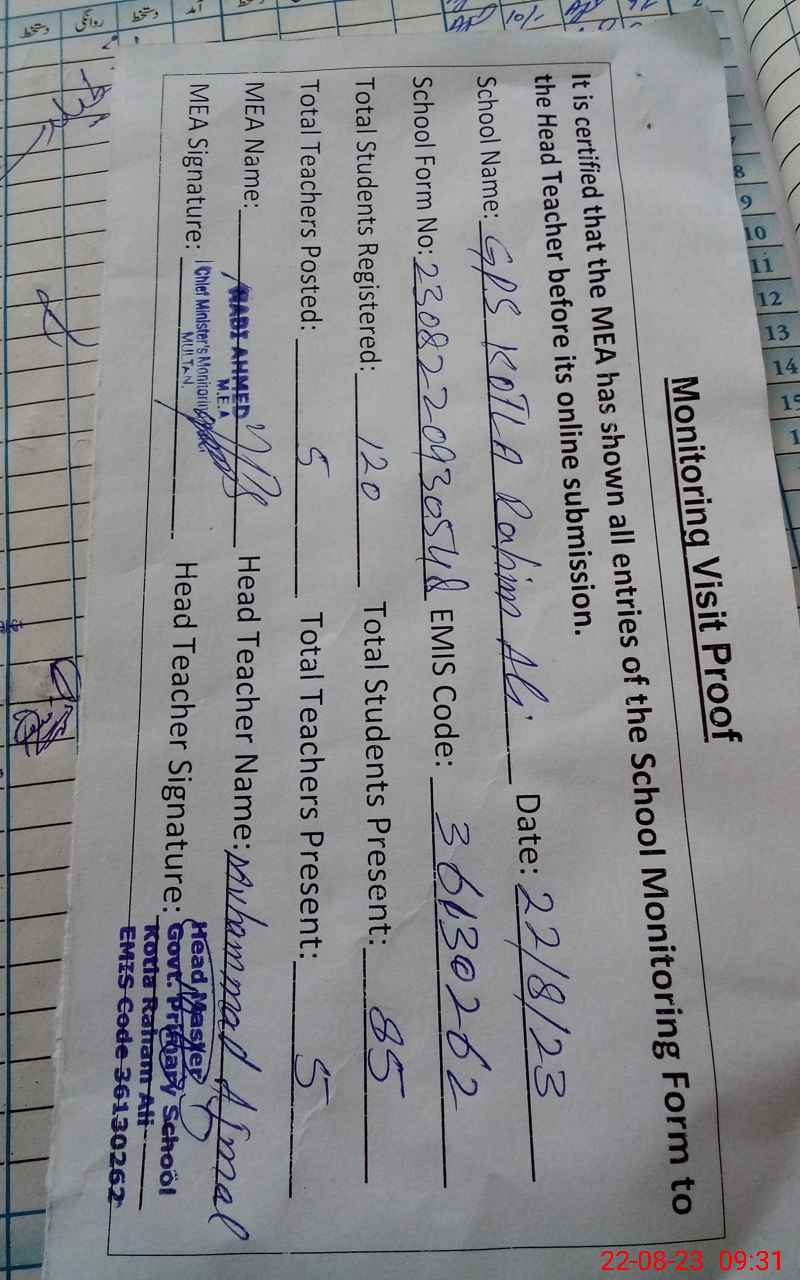 Monitoring Visit Proof
It is certified that the MEA has shown all entries of the School Monitoring Form to
the Head Teacher before its online submission.
School Name: GPS KOTLA Rahim Ali Date: 22/8/23
School Form No: 230822093054 EMIS Code: 36130262
Total Students Registered: 120 Total Students Present: 85
Total Teachers Posted: 5 Total Teachers Present: 5
MEA Name: NABI AHMED Head Teacher Name: Muhammad Ajmal
M.E.A
MEA Signature: Chief Minister's Monitoring Head Teacher Signature:
MULTAN
Head Master
Govt. Primary School
Kotla Raham Ali
EMIS Code 36130262
8
9
10
11
12
13
14
15
1
22-08-23 09:31